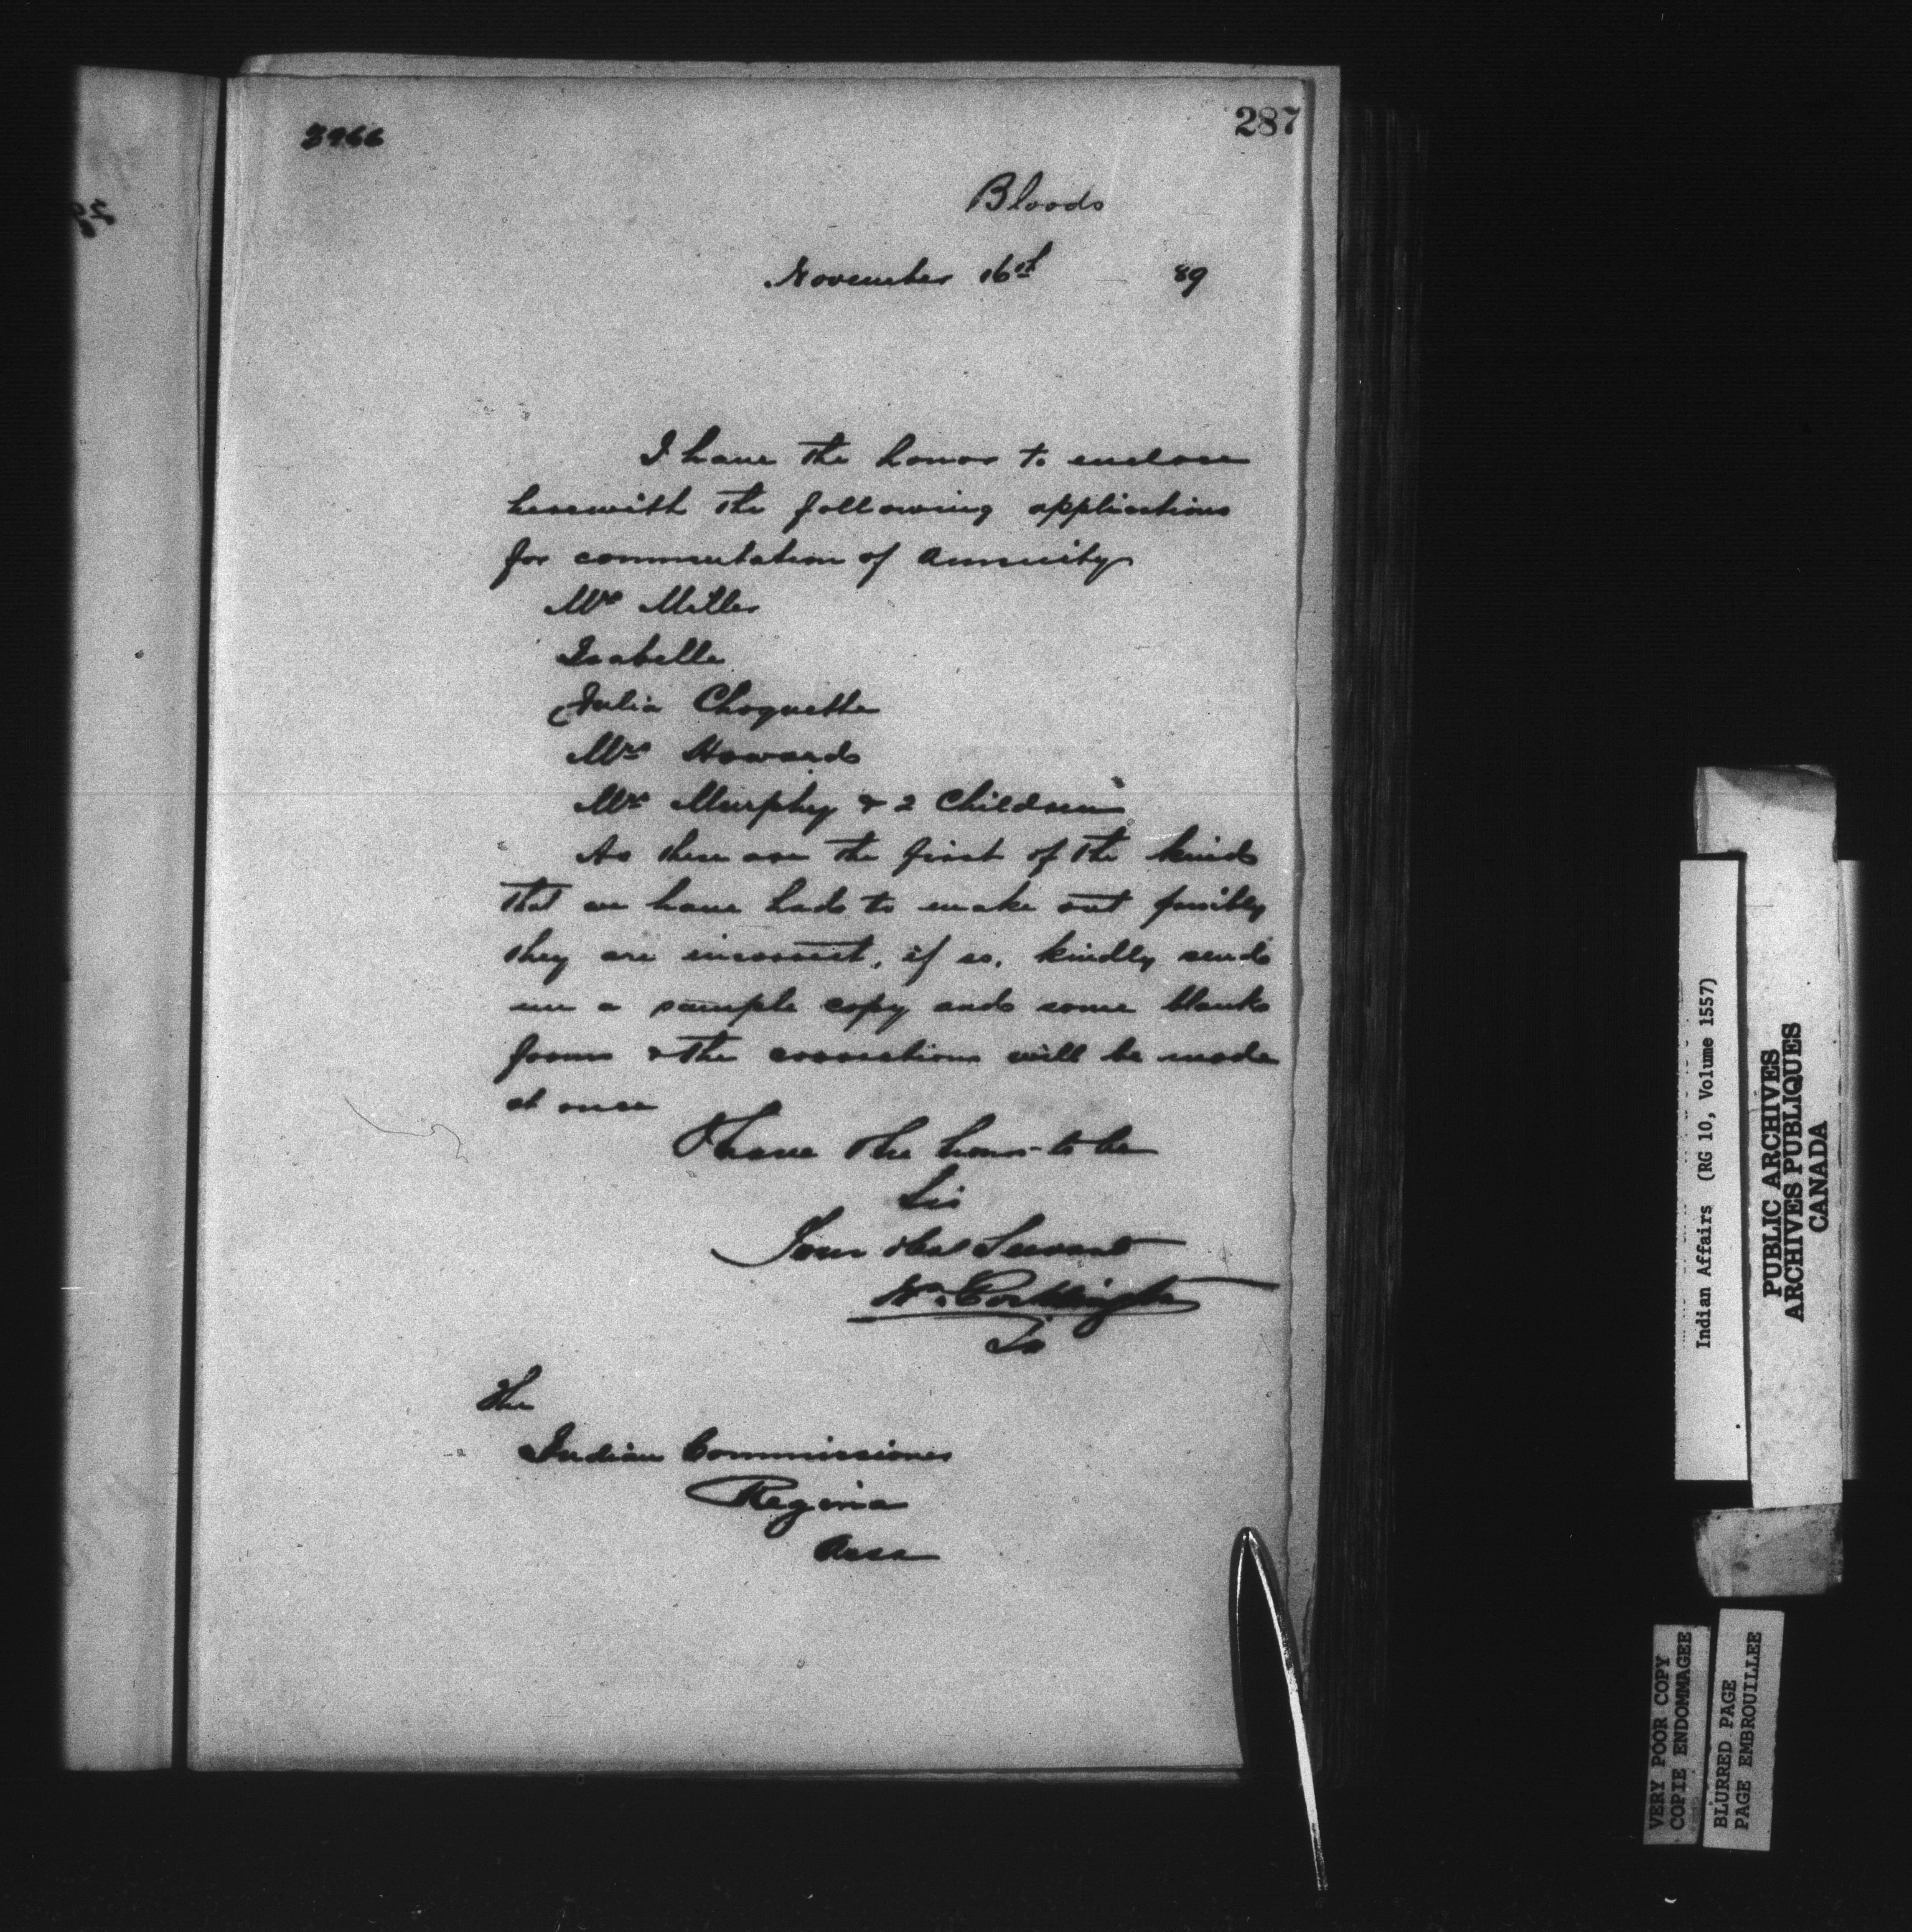 287
3966
Bloods
November 16th 89
I have the honor to enclose
herewith the following applications
for commutation of annuity
Mrs Miller
Isabelle
Julia Choquette
Mrs Howard
Mrs Murphy & 2 Children
As these are the first of the kind
that we have had to make out possibly
they are incorrect, if so, kindly send
me a sample copy and some blank
forms & the corrections will be made
at once
I have the honor to be
Sir
Your Obed Servant
The
Indian Commissioner
Regina
Assa
Indian Affairs (RG 10, Volume 1557)
PUBLIC ARCHIVES
ARCHIVES PUBLIQUES
CANADA
VERY POOR COPY
COPIE ENDOMMAGEE
BLURRED PAGE
PAGE EMBROUILLEE